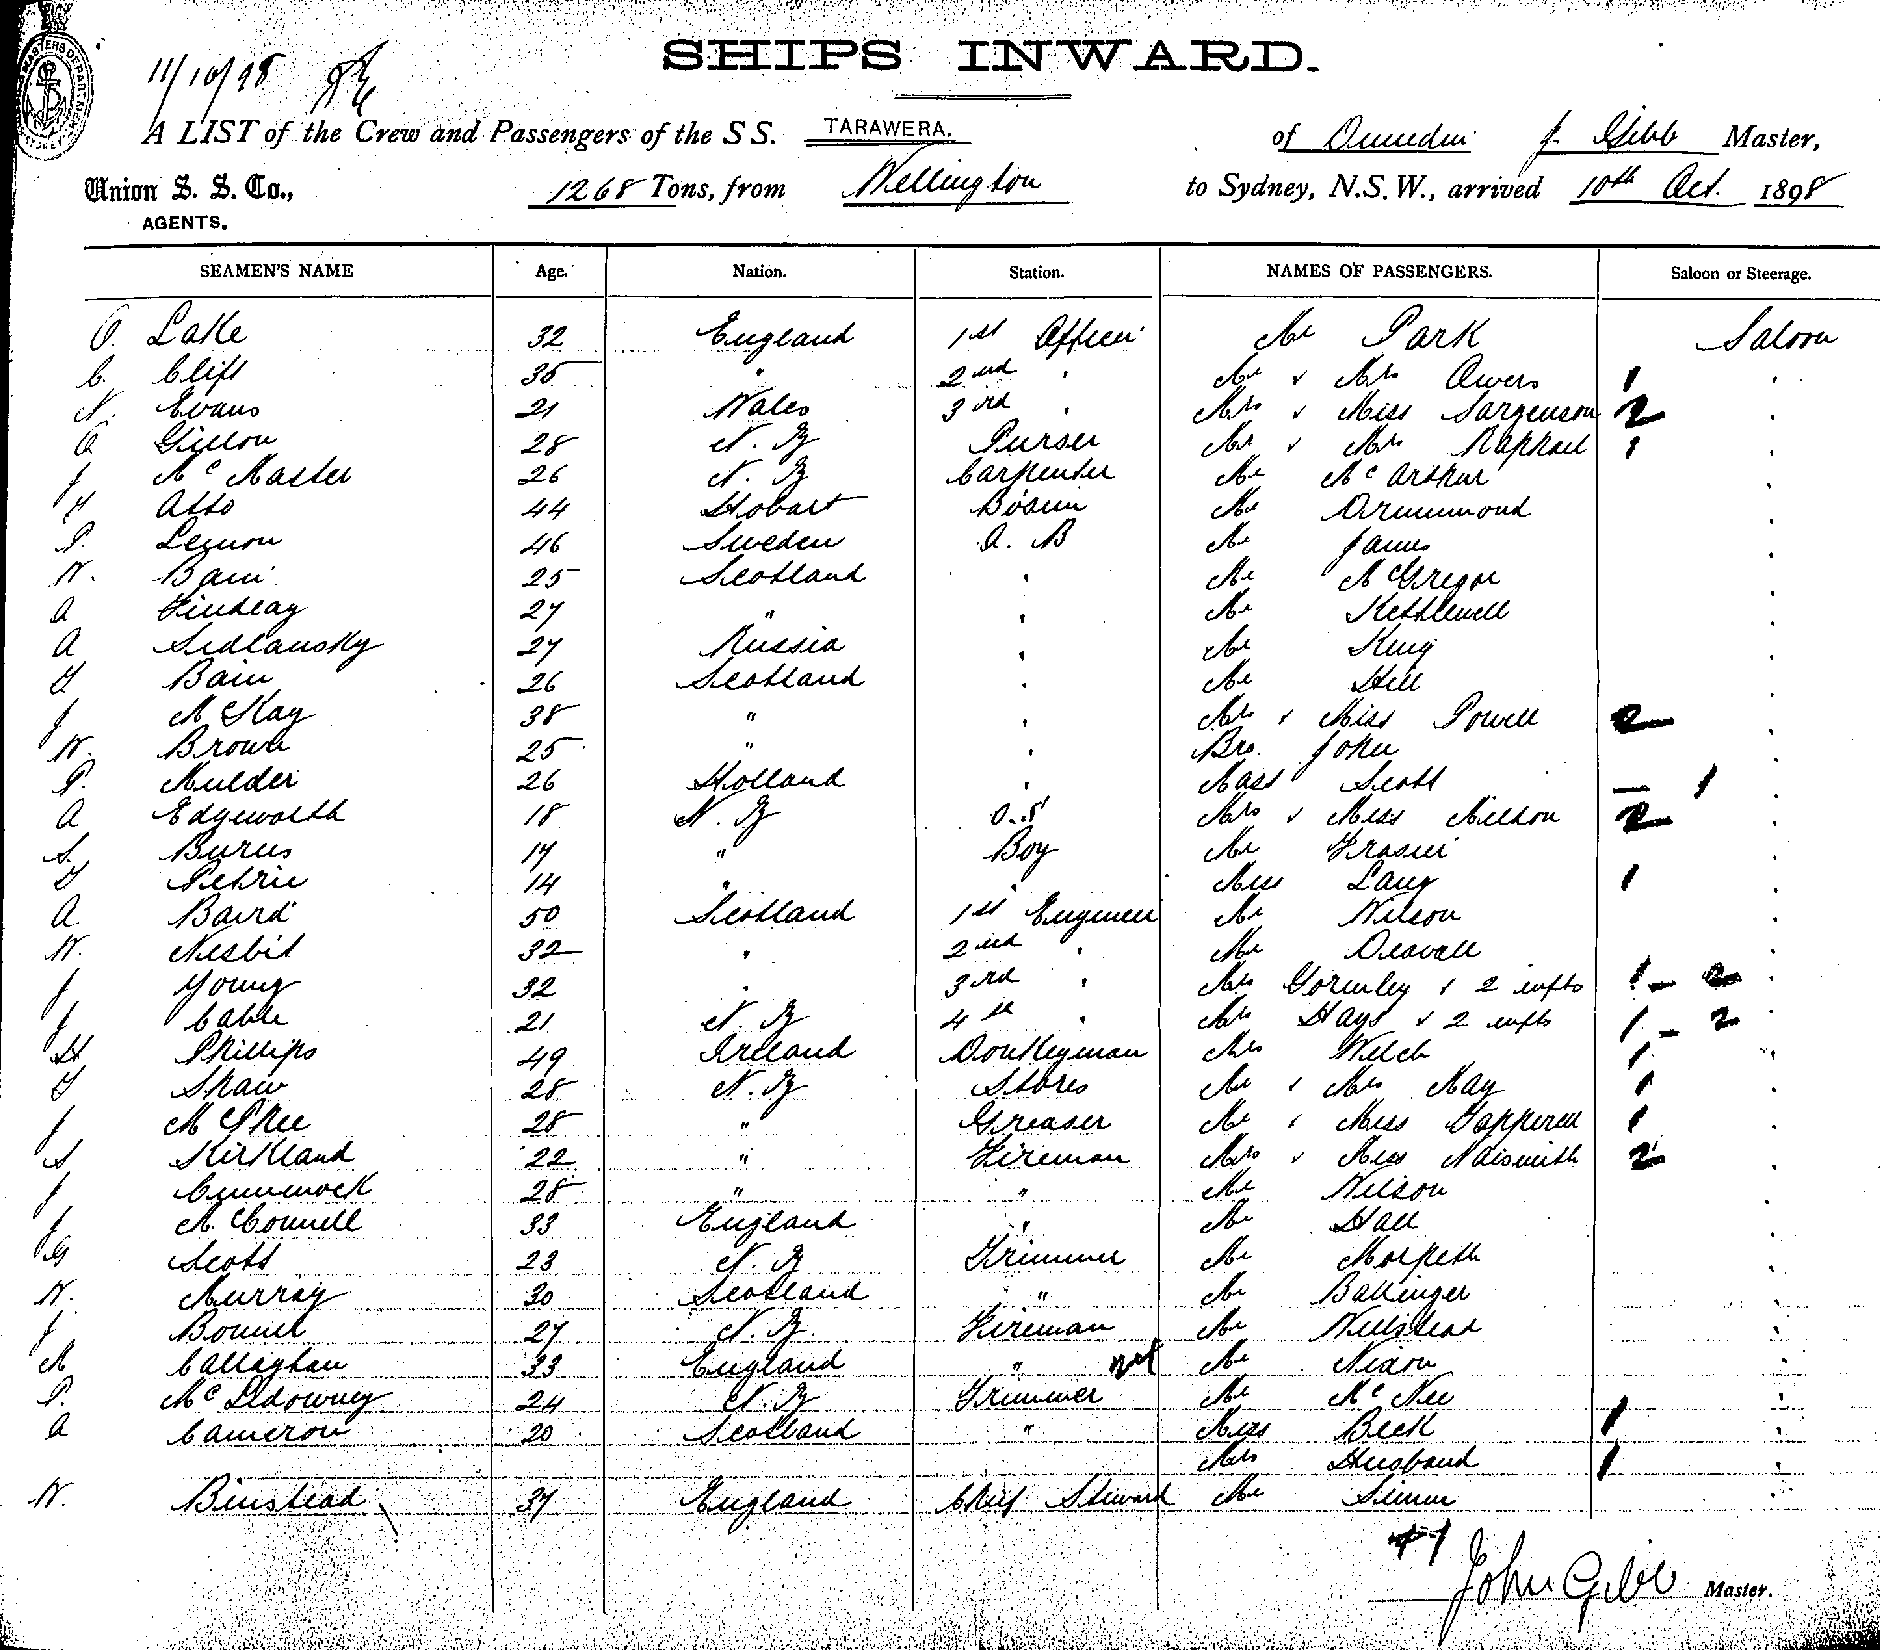 11/10/98
SHIPS INWARD.
A LIST of the Crew and Passengers of the S S. TARAWERA. of Dunedin J. Gibb Master,
Union S. S. Co., 1268 Tons, from Wellington to Sydney, N.S.W., arrived 10th Oct. 1898
AGENTS.
SEAMEN'S NAME Age. Nation. Station. NAMES OF PASSENGERS. Saloon or Steerage.
O. Lake 32 England 1st Officer Mr Park Saloon
C. Clift 35 " 2nd " Mr & Mrs Owers 1 "
N. Evans 21 Wales 3rd " Mrs & Miss Sargenson 2 "
Gillon 28 N. Z Purser Mr & Mrs Raphael 1 "
J McMaster 26 N. Z Carpenter Mr McArthur "
Otto 44 Hobart Bosun Mr Drummond "
P. Legnon 46 Sweden A. B Mr James "
W. Bain 25 Scotland " Mr McGregor "
A Findlay 27 " " Mr Kethlewell "
A Sedlansky 27 Russia " Mr King "
Bain 26 Scotland " Mr Hill "
J McKay 38 " " Mrs & Miss Powell 2 "
W. Brown 25 " " Bro. John "
P. Mulder 26 Holland " Mass Scott — 1 "
A Edgeworth 18 N. Z O.S Mrs & Miss Neilson 2 "
S. Burns 17 " Boy Mr Frasier "
Petrie 14 " Miss Lang 1 "
A. Baird 50 Scotland 1st Engineer Mr Wilson "
W. Nesbit 32 " 2nd " Mr Deavoll "
J Young 32 " 3rd " Mrs Gormley & 2 infts 1 - 2 "
J Cable 21 N. Z 4th " Mrs Hays & 2 infts 1 - 2 "
H Phillips 49 Ireland Donkeyman Mrs Welch 1 "
Shaw 28 N. Z Stores Mr & Mrs May 1 "
J McPhee 28 " Greaser Mr & Miss Tapperell 1 "
S Kirkland 22 " Fireman Mrs & Miss Naismith 2 "
J Cummock 28 " " Mr Wilson "
J McConnell 33 England " Mr Hall "
G Scott 23 N. Z Trimmer Mr Morpeth "
W. Murray 30 Scotland " Mr Ballinger "
J Bonnel 27 N. Z. Fireman Mr Willstead "
M Callaghan 33 England " not Mr Nixon "
P. McIldowney 24 N. Z Trimmer Mr McNee "
A Cameron 20 Scotland " Miss Beck 1 "
Mrs Husband 1 "
W. Binstead 37 England Chief Steward Mr "
John Gibb Master.